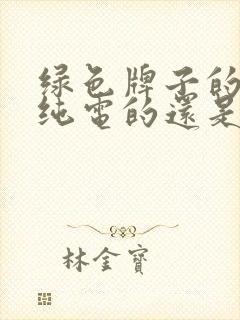 绿色牌子的
纯电的還是
林金寶